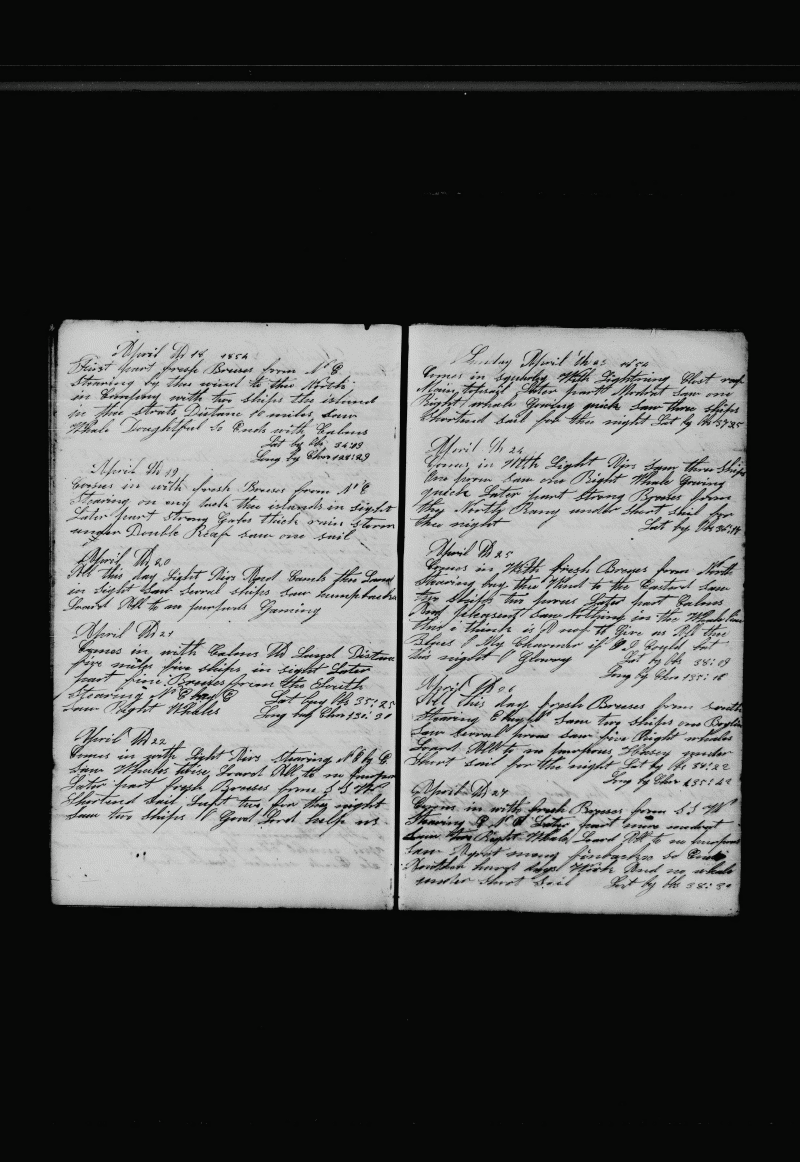 April th 18 1854
First part fresh Breises from N E
Stearing by the wind to the North
in Company with two ships the island
in the straits Distance 10 miles saw
Whale Doughtful So Ends with Calms
Lat by Ob 34:49
Long by Chro 128:29
April th 19
Comes in with fresh Breses from N E
Stearing on my tack the islands in sight
Later part Strong Gales thick rain storm
under Double Reap saw one sail
April th 20
All this day Light Airs And Calmes the Land
in sight Saw serval ships saw humpbacks
Loard All to no purpose Gaming
April th 21
Comes in with Calms the Land Distance
five miles five ships in sight Later
part fine Breeses from the South
Stearing N E by E Lat by Ob 35:25
Saw Right Whales Long by Chro 130:30
April th 22
Comes in with Light Airs stearing N E by E
saw Whales twise Loard All to no purpose
Later part fresh Breeses from S S W
Shortend Sail Luft two for the night
Saw two ships O Good Lord help us
Sunday April th 23 1854
Comes in squaly With Lightning Clost reef
Main topsail Later part Modrat Saw one
Right whale Gowing quick Saw three ships
Shortend sail for the night Lat by Ob 37:25
April th 24
Comes in With Light Airs Saw three ships
One prow Saw one Right Whale Gowing
quick Later part Strong Breeses from
the North Rany under Short Sail for
the night Lat by Ob 36:14
April th 25
Comes in With fresh Breses from North
Stearing by the Wind to the Eastard Saw
two ships two prows Later part Calms
And plensent Saw Nothing in the Whale line
this i think is A nof to Give us All the
Blues O My Charmer if I Could but
this night Glowry Lat by Ob 38:09
Long by Chro 135:18
April th 26
All this day fresh Breeses from south
Stearing E by N Saw two ships one
Saw serval prows saw five Right whales
Loard All to no purposes Hasey under
Short Sail for the night Lat by Ob 38:22
Long by Chro 135:22
April th 27
Comes in with fresh Breeses from S S W
Stearing E N E Later part more modrat
Saw two Right Whale Loard All to no purpose
Saw A great meny finbacks so Ends
Another hard days Work And no whale
under Short Sail Lat by Ob 38:30